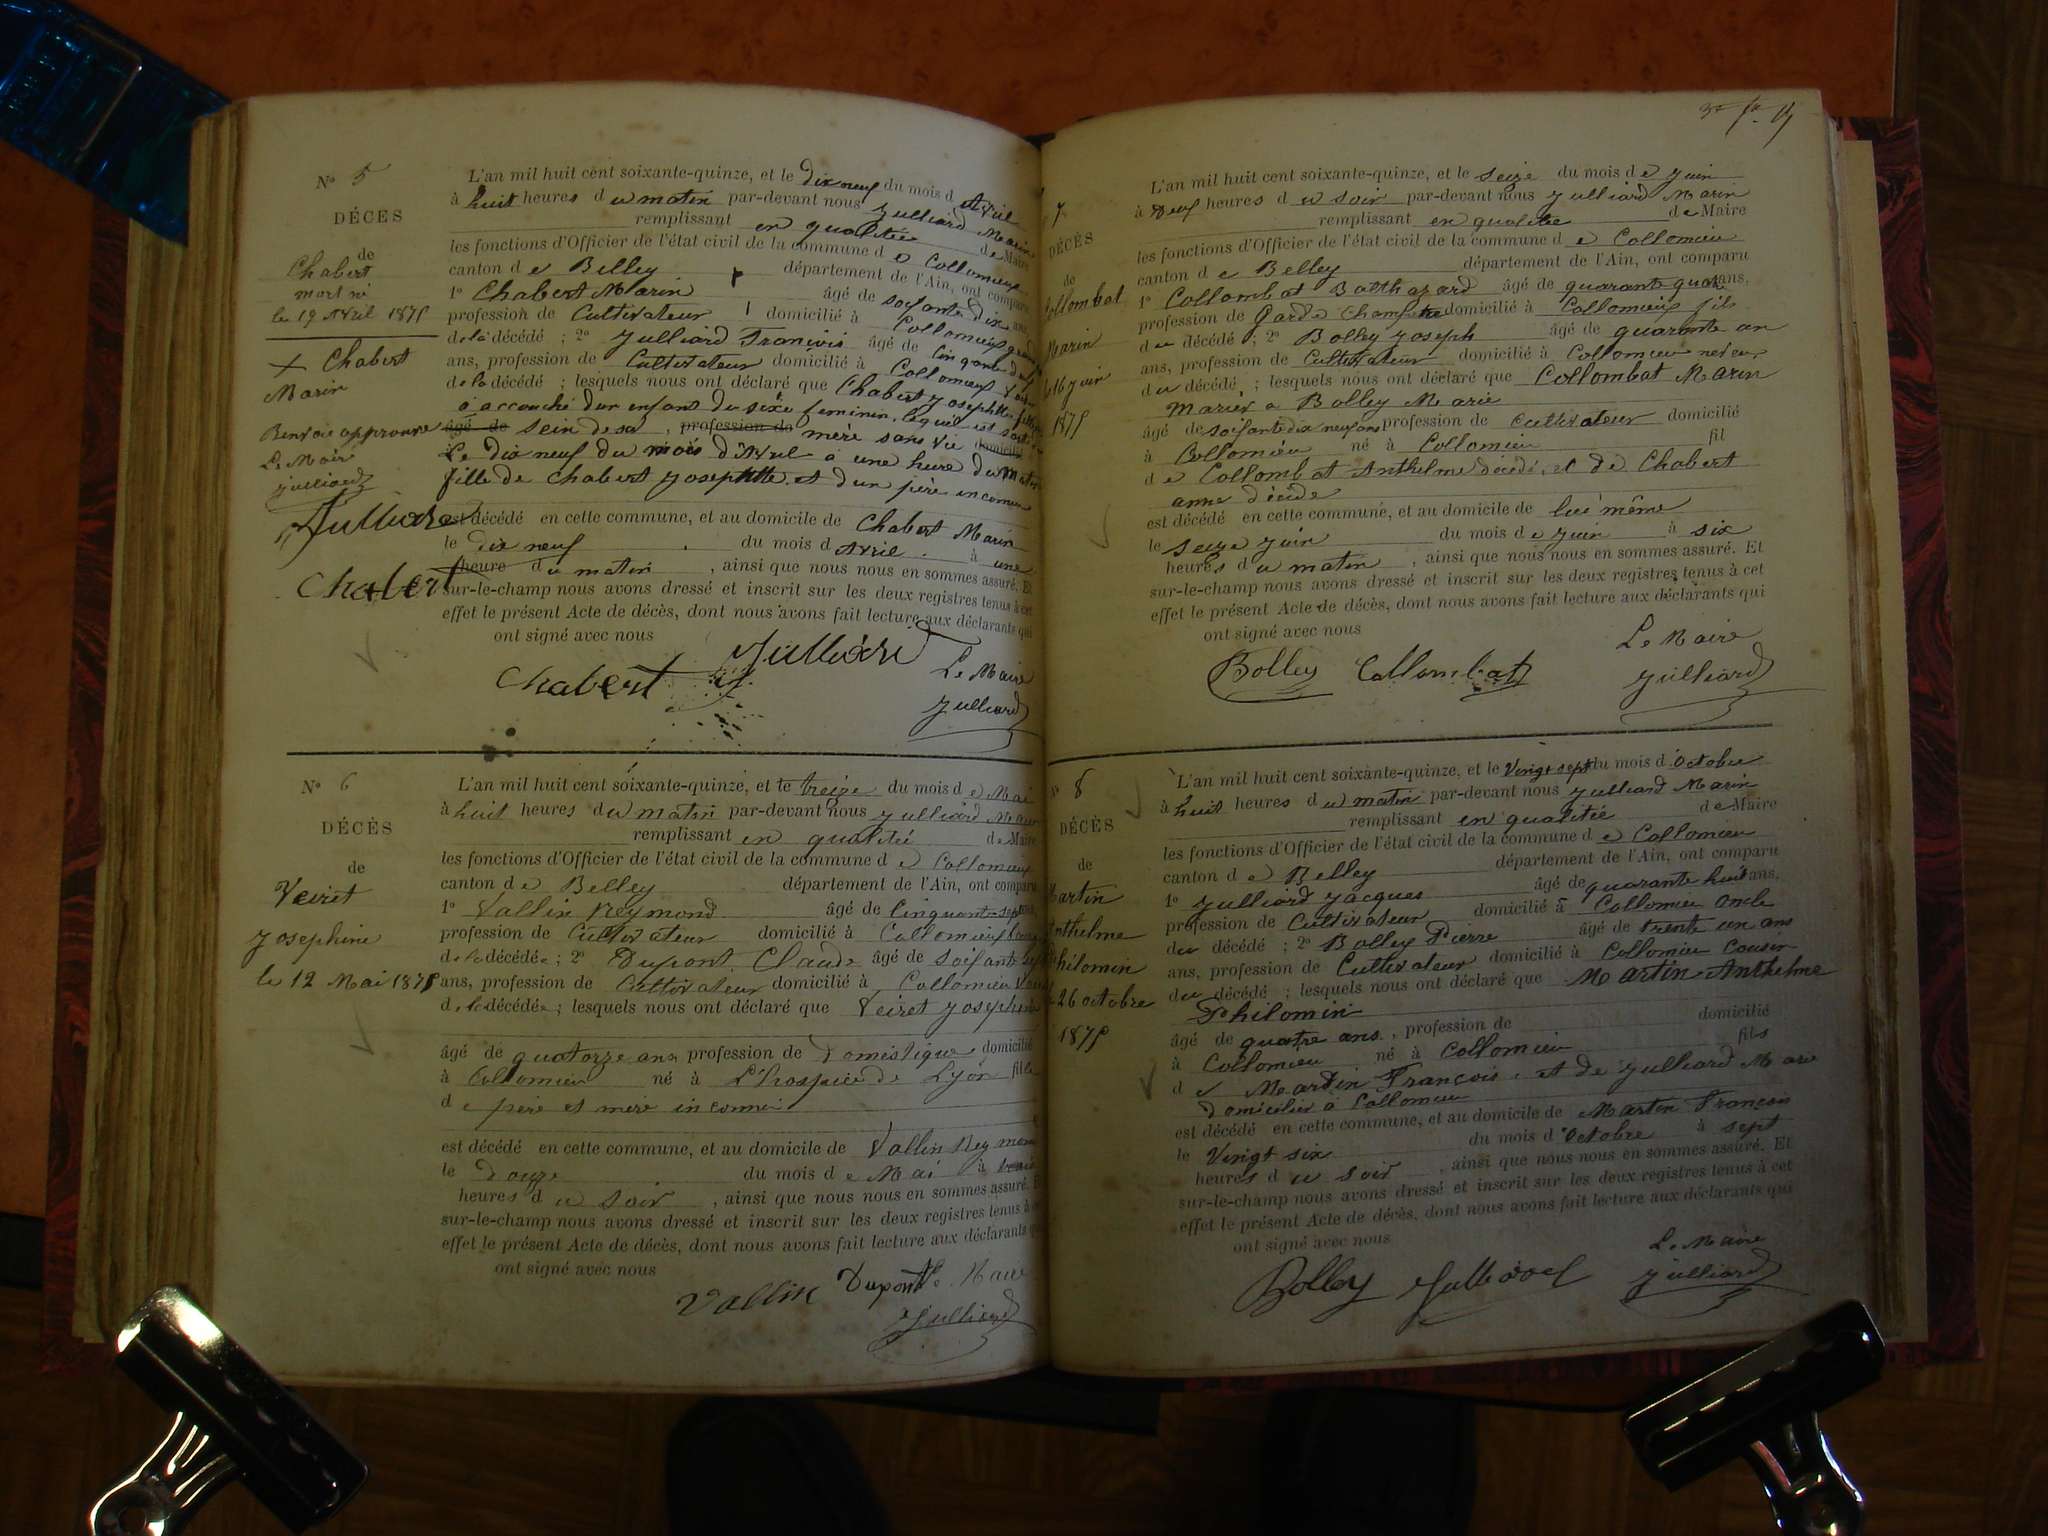 N° 5
DÉCES
de
Chabert
mort né
le 19 Avril 1875
+ Chabert
Marin
Renvoie approuvé
Le Maire
Julliard
Julliard
Chabert
L'an mil huit cent soixante-quinze, et le dix neuf du mois d'Avril
à huit heures du matin par-devant nous Julliard Marin
remplissant en qualitée de Maire
les fonctions d'Officier de l'état civil de la commune de Collomieu
canton de Belley département de l'Ain, ont comparu
1° Chabert Marin âgé de soixante dix ans,
profession de Cultivateur domicilié à Collomieu
de la décédé ; 2° Julliard François âgé de cinquante
ans, profession de Cultivateur domicilié à Collomieu
de la décédé ; lesquels nous ont déclaré que Chabert Josephtte
a accouché d'un enfant du sixe feminin, lequel est sorti
âgé de sein de sa , profession de mère sans vie domicilié
Le dix neuf du mois d'Avril à une heure du Matin
fille de Chabert Josephtte et d'un père inconnu
est décédé en cette commune, et au domicile de Chabert Marin
le dix neuf du mois d Avril à une
heure du matin , ainsi que nous nous en sommes assuré. Et
sur-le-champ nous avons dressé et inscrit sur les deux registres tenus à cet
effet le présent Acte de décès, dont nous avons fait lecture aux déclarants qui
ont signé avec nous
Chabert Julliard Le Maire
Julliard
N° 6
DÉCÈS
de
Veiret
Josephine
le 12 Mai 1875
L'an mil huit cent soixante-quinze, et le treize du mois de Mai
à huit heures du matin par-devant nous Julliard Marin
remplissant en qualitée de Maire
les fonctions d'Officier de l'état civil de la commune de Collomieu
canton de Belley département de l'Ain, ont comparu
1° Vallin Reymond âgé de cinquante sept
profession de Cultivateur domicilié à Collomieu
de la décédée ; 2° Dupont Claude âgé de soixante
ans, profession de Cultivateur domicilié à Collomieu
de la décédée ; lesquels nous ont déclaré que Veiret Josephine
âgé de quatorze ans profession de Domestique domicilié
à Collomieu né à L'hospice de Lyon fille
de père et mère inconnu
est décédé en cette commune, et au domicile de Vallin Reymond
le douze du mois de Mai à
heures du soir , ainsi que nous nous en sommes assuré. Et
sur-le-champ nous avons dressé et inscrit sur les deux registres tenus à
effet le présent Acte de décès, dont nous avons fait lecture aux déclarants
ont signé avec nous
Vallin Dupont Le Maire
Julliard
7
DÉCÈS
de
Collombat
Marin
le 16 juin
1875
L'an mil huit cent soixante-quinze, et le seize du mois de juin
à neuf heures du soir par-devant nous Julliard Marin
remplissant en qualitée de Maire
les fonctions d'Officier de l'état civil de la commune de Collomieu
canton de Belley département de l'Ain, ont comparu
1° Collombat Balthazard âgé de quarante quatre ans,
profession de Garde Champetre domicilié à Collomieu fils
du décédé ; 2° Bolley Joseph âgé de quarante un
ans, profession de Cultivateur domicilié à Collomieu neveu
du décédé ; lesquels nous ont déclaré que Collombat Marin
Marier a Bolley Marie
âgé de soixante dix neuf ans profession de Cultivateur domicilié
à Collomieu né à Collomieu fil
de Collombat Anthelme décédé, et de Chabert
anne décéde
est décédé en cette commune, et au domicile de lui même
le seize juin du mois de juin à six
heures du matin , ainsi que nous nous en sommes assuré. Et
sur-le-champ nous avons dressé et inscrit sur les deux registres tenus à cet
effet le présent Acte de décès, dont nous avons fait lecture aux déclarants qui
ont signé avec nous
Le Maire
Bolley Collombat Julliard
N° 8
DÉCÈS
de
Martin
Anthelme
Philomin
le 26 octobre
1875
L'an mil huit cent soixante-quinze, et le Vingt sept du mois d'Octobre
à huit heures du matin par-devant nous Julliard Marin
remplissant en qualitée de Maire
les fonctions d'Officier de l'état civil de la commune de Collomieu
canton de Belley département de l'Ain, ont comparu
1° Julliard Jacques âgé de quarante huit ans,
profession de Cultivateur domicilié à Collomieu oncle
du décédé ; 2° Bolley Pierre âgé de trente un ans
ans, profession de Cultivateur domicilié à Collomieu Cousin
du décédé ; lesquels nous ont déclaré que Martin Anthelme
Philomin
âgé de quatre ans , profession de domicilié
à Collomieu né à Collomieu fils
de Martin François, et de Julliard Marie
domicilier à Collomieu
est décédé en cette commune, et au domicile de Martin François
le Vingt six du mois d'Octobre à sept
heures du soir , ainsi que nous nous en sommes assuré. Et
sur-le-champ nous avons dressé et inscrit sur les deux registres tenus à cet
effet le présent Acte de décès, dont nous avons fait lecture aux déclarants qui
ont signé avec nous
Le Maire
Bolley Julliard Julliard